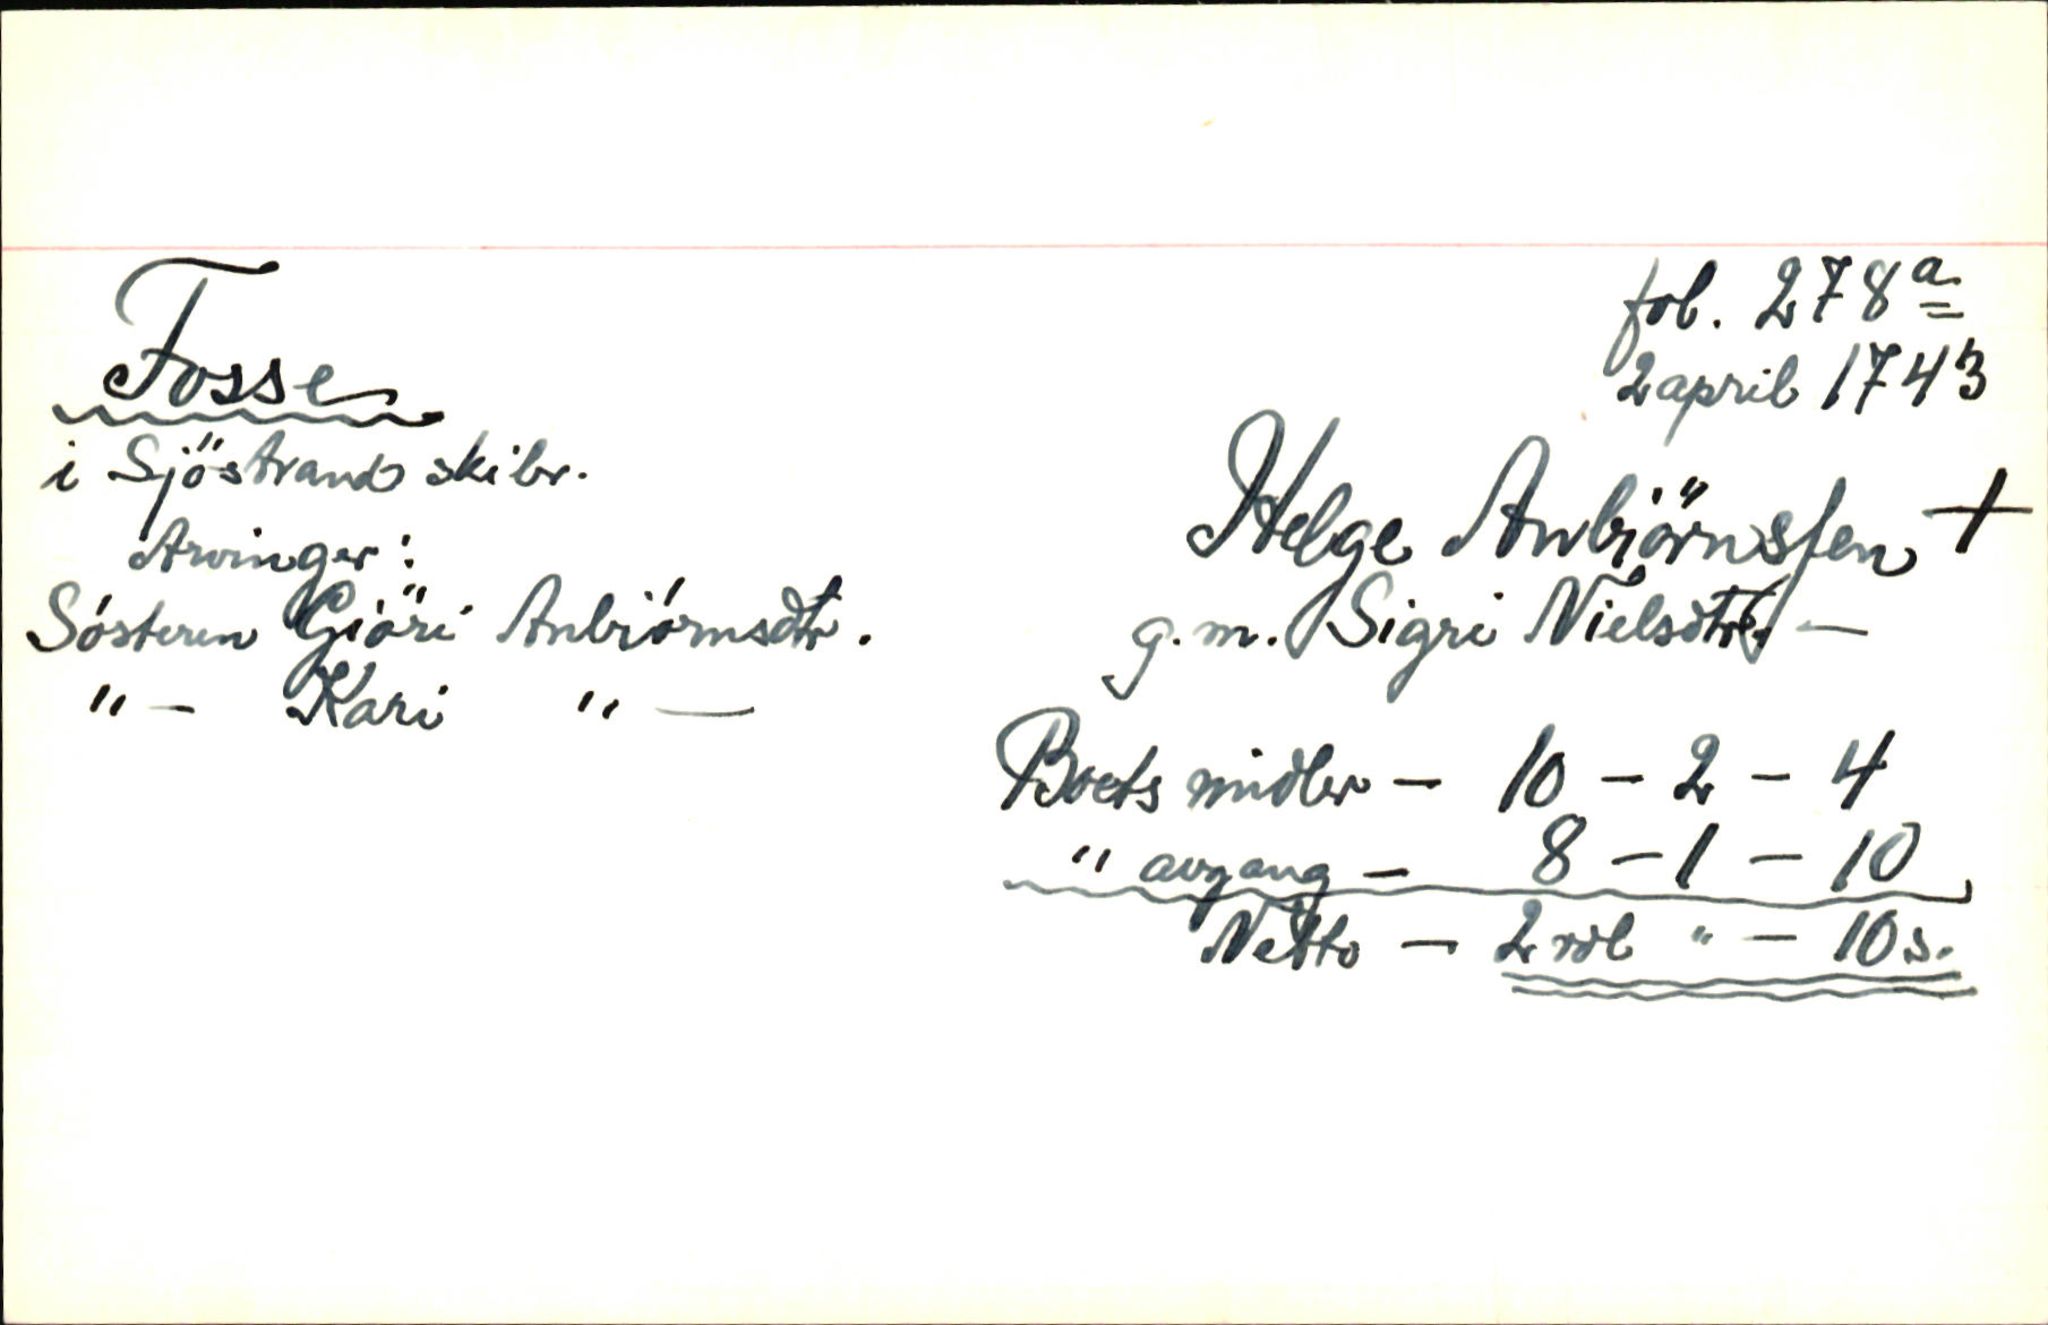 fol. 278a
2 april 1743
Fosse
i Sjöstrand skibr.
Helge Anbiörnssen +
g.m. Sigri Nielsdtr. —
Arvinger:
Sósteren Giöri Anbiórnsdtr.
"— Kari "—
Boets midler — 10 — 2 — 4
" avgang — 8 — 1 — 10
Netto — 2 rdl " — 10 s.